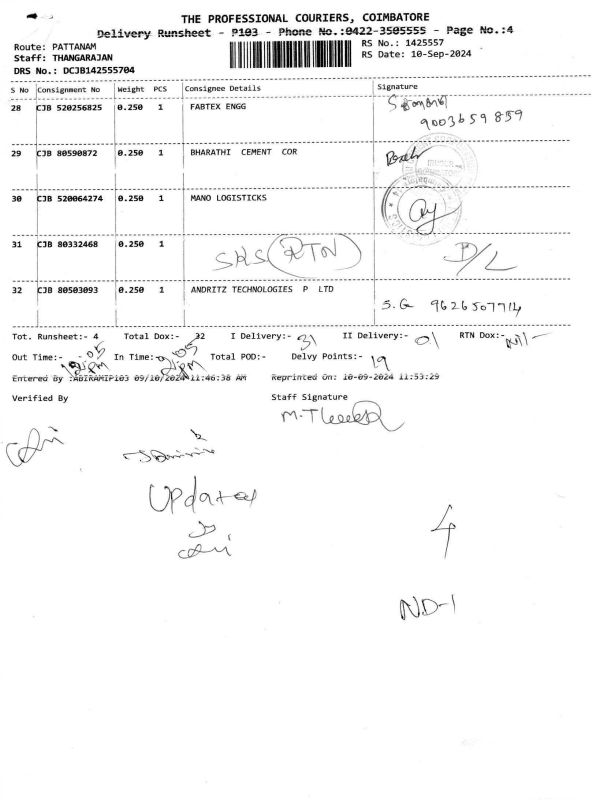 THE PROFESSIONAL COURIERS, COIMBATORE
Delivery Runsheet - P103 - Phone No.:0422-3505555 - Page No.:4
Route: PATTANAM RS No.: 1425557
Staff: THANGARAJAN RS Date: 10-Sep-2024
DRS No.: DCJB142555704
S No Consignment No Weight PCS Consignee Details Signature
28 CJB 520256825 0.250 1 FABTEX ENGG
9003659859
29 CJB 80590872 0.250 1 BHARATHI CEMENT COR
30 CJB 520064274 0.250 1 MANO LOGISTICKS
31 CJB 80332468 0.250 1 SKS RTN D/L
32 CJB 80503093 0.250 1 ANDRITZ TECHNOLOGIES P LTD
S.G 9626507714
Tot. Runsheet:- 4 Total Dox:- 32 I Delivery:- 31 II Delivery:- 01 RTN Dox:- Nil -
Out Time:- In Time:- Total POD:- Delvy Points:- 19
Entered By :ABIRAMIP103 09/10/2024 11:46:38 AM Reprinted On: 10-09-2024 11:53:29
Verified By Staff Signature
Updated
by
4
ND-1